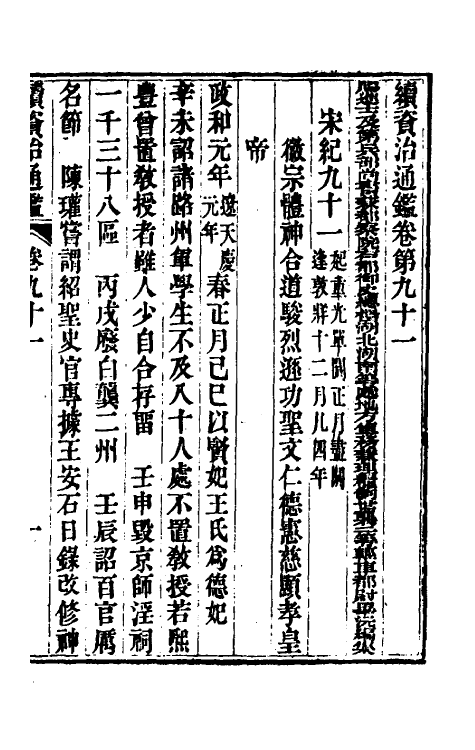 續資治通鑑卷第九十一
宋紀九十一 起重光單閼正月盡閼逢敦牂十二月凡四年
徽宗體神合道駿烈遜功聖文仁德憲慈顯孝皇
帝
政和元年 遼天慶元年 春正月己巳以賢妃王氏爲德妃
辛未詔諸路州軍學生不及八十人處不置敎授若熙
豐曾置敎授者雖人少自合存留 壬申毀京師淫祠
一千三十八區 丙戌廢白龔二州 壬辰詔百官厲
名節 陳瓘嘗謂紹聖史官專據王安石日錄改修神
續資治通鑑 卷九十一 一